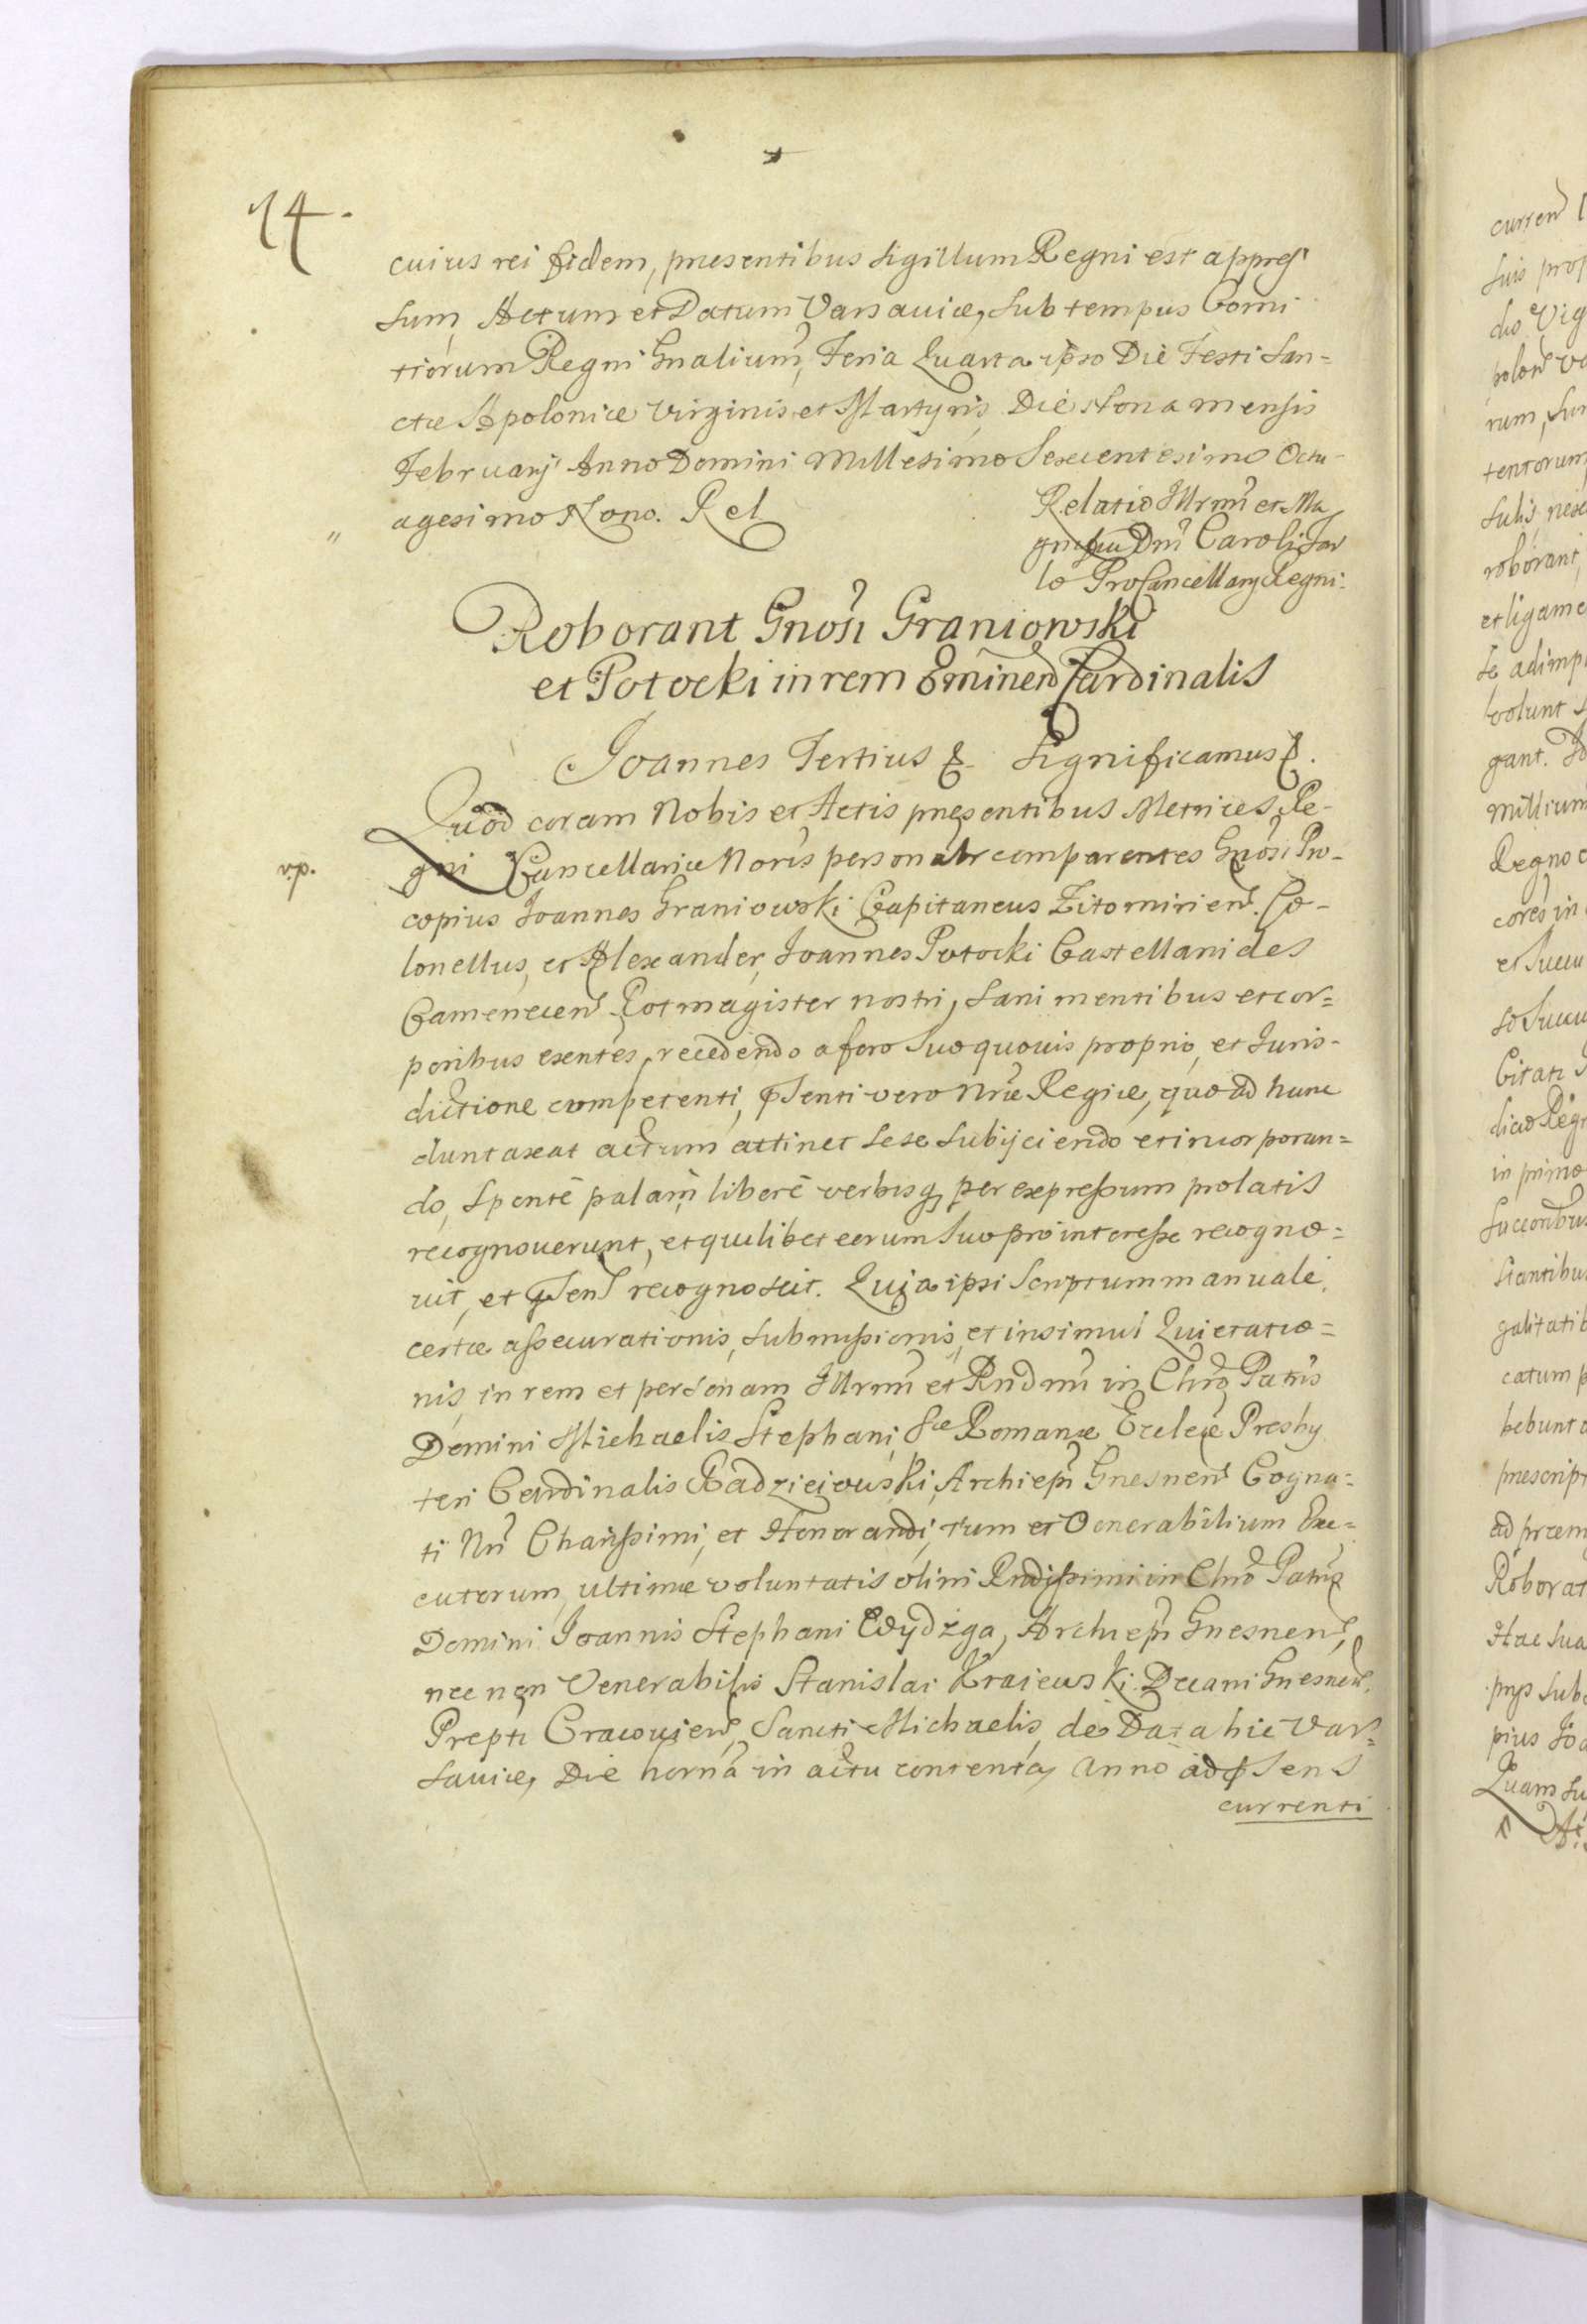 14.
cuius rei fidem, presentibus sigillum Regni est appres
sum, Actum et Datum Varsauiæ, sub tempus Comi
tiorum Regni Gnalium, Feria Quarta ipso Die Festi San=
ctæ Apoloniæ Virginis et Martyris Die Nona mensis
Februarij Anno Domini Millesimo Sexcentesimo Octu-
agesimo Nono. Rel
Relatio Illrmi et Ma
gnifici Dni Caroli Tar
lo ProCancellarij Regni.
Roborant Gnosi Graniowski
et Potocki in rem Eminen Cardinalis
Joannes Tertius &. Significamus &.
Quod coram Nobis et Actis presentibus Metrices Re-
vp.
gni Cancellariæ Noris personalr comparentes Gnosi Pro-
copius Joannes Graniowski Capitaneus Zitomirien. Co-
lonellus, et Alexander Joannes Potocki Castellanides
Camenecen Rotmagister nostri, sani mentibus et cor=
poribus exentes, recedendo a foro suo quouis proprio, et Juris-
dictione competenti, pSenti vero Nræ Regiæ, quo ad hunc
duntaxat actum attinet sese subijciendo et incorporan=
do, sponte palam libere verbisq per expressum prolatis
recognouerunt, et quilibet eorum suo pro interesse recogno=
uit, et pSen recognoscit. Quia ipsi Scriptum manuale
certæ assecurationis, submissionis, et insimul Quietatio=
nis, in rem et personam Illrmi et Rndmi in Chro Patris
Domini Michaelis Stephani, Sæ Romanæ Ecclæ Presby
teri Cardinalis Radzieiouski, Archiepi Gnesnen Cogna=
ti Nri Charissimi, et Honorandi, tum et Venerabilium Exe=
cutorum, ultimæ voluntatis olim Rndissimi in Chro Patris
Domini Joannis Stephani Wydżga, Archiepi Gnesnen,
nec non Venerabilis Stanislai Kraiewski Decani Gnesnen,
Prepti Cracouien, Sancti Michaelis, de Data hic Var=
sauiæ, Die horna in actu contenta, Anno ad pSens
currenti